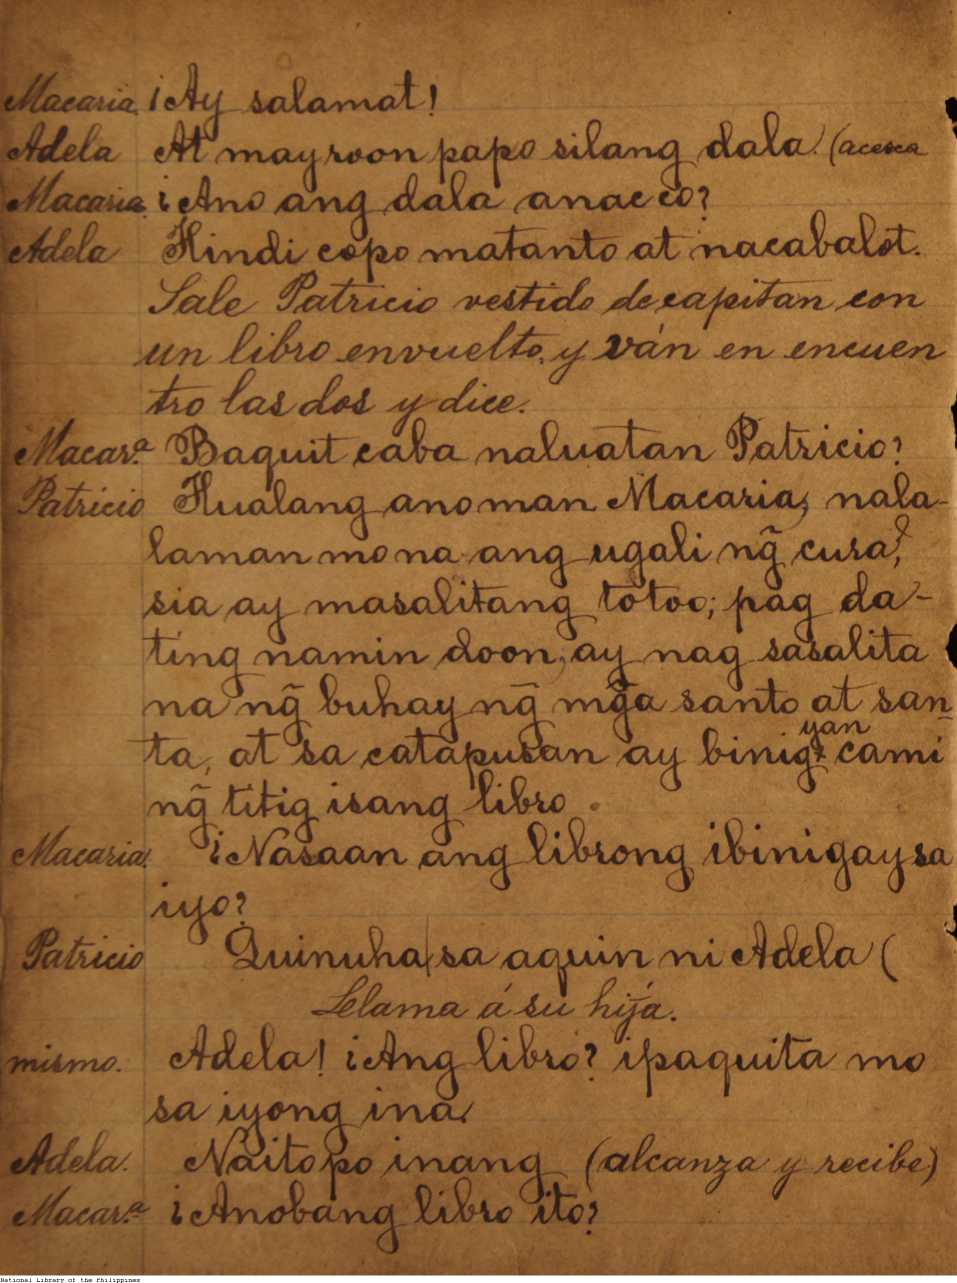 Macaria ¡Ay salamat!
Adela At mayroon papo silang dala. (acesca
Macaria. ¿Ano ang dala anac co?
Adela Hindi copo matanto at nacabalot.
Sale Patricio vestido de capitan con
un libro envuelto, y ván en encuen
tro las dos y dice.
Macar.ª Baquit caba naluatan Patricio?
Patricio Hualang anoman Macaria, nala-
laman mo na ang ugali ng̃ cura,
sia ay masalitang totoo; pag da-
ting namin doon, ay nag sasalita
na ng̃ buhay ng̃ mg̃a santo at san-
ta, at sa catapusan ay binigyan cami
ng̃ titig isang libro.
Macaria. ¿Nasaan ang librong ibinigay sa
iyo?
Patricio Quinuha sa aquin ni Adela (
Llama á su hija.
mismo. Adela! ¿Ang libro? ipaquita mo
sa iyong ina.
Adela. Naito po inang (alcanza y recibe)
Macar.ª ¿Anobang libro ito?
National Library of the Philippines